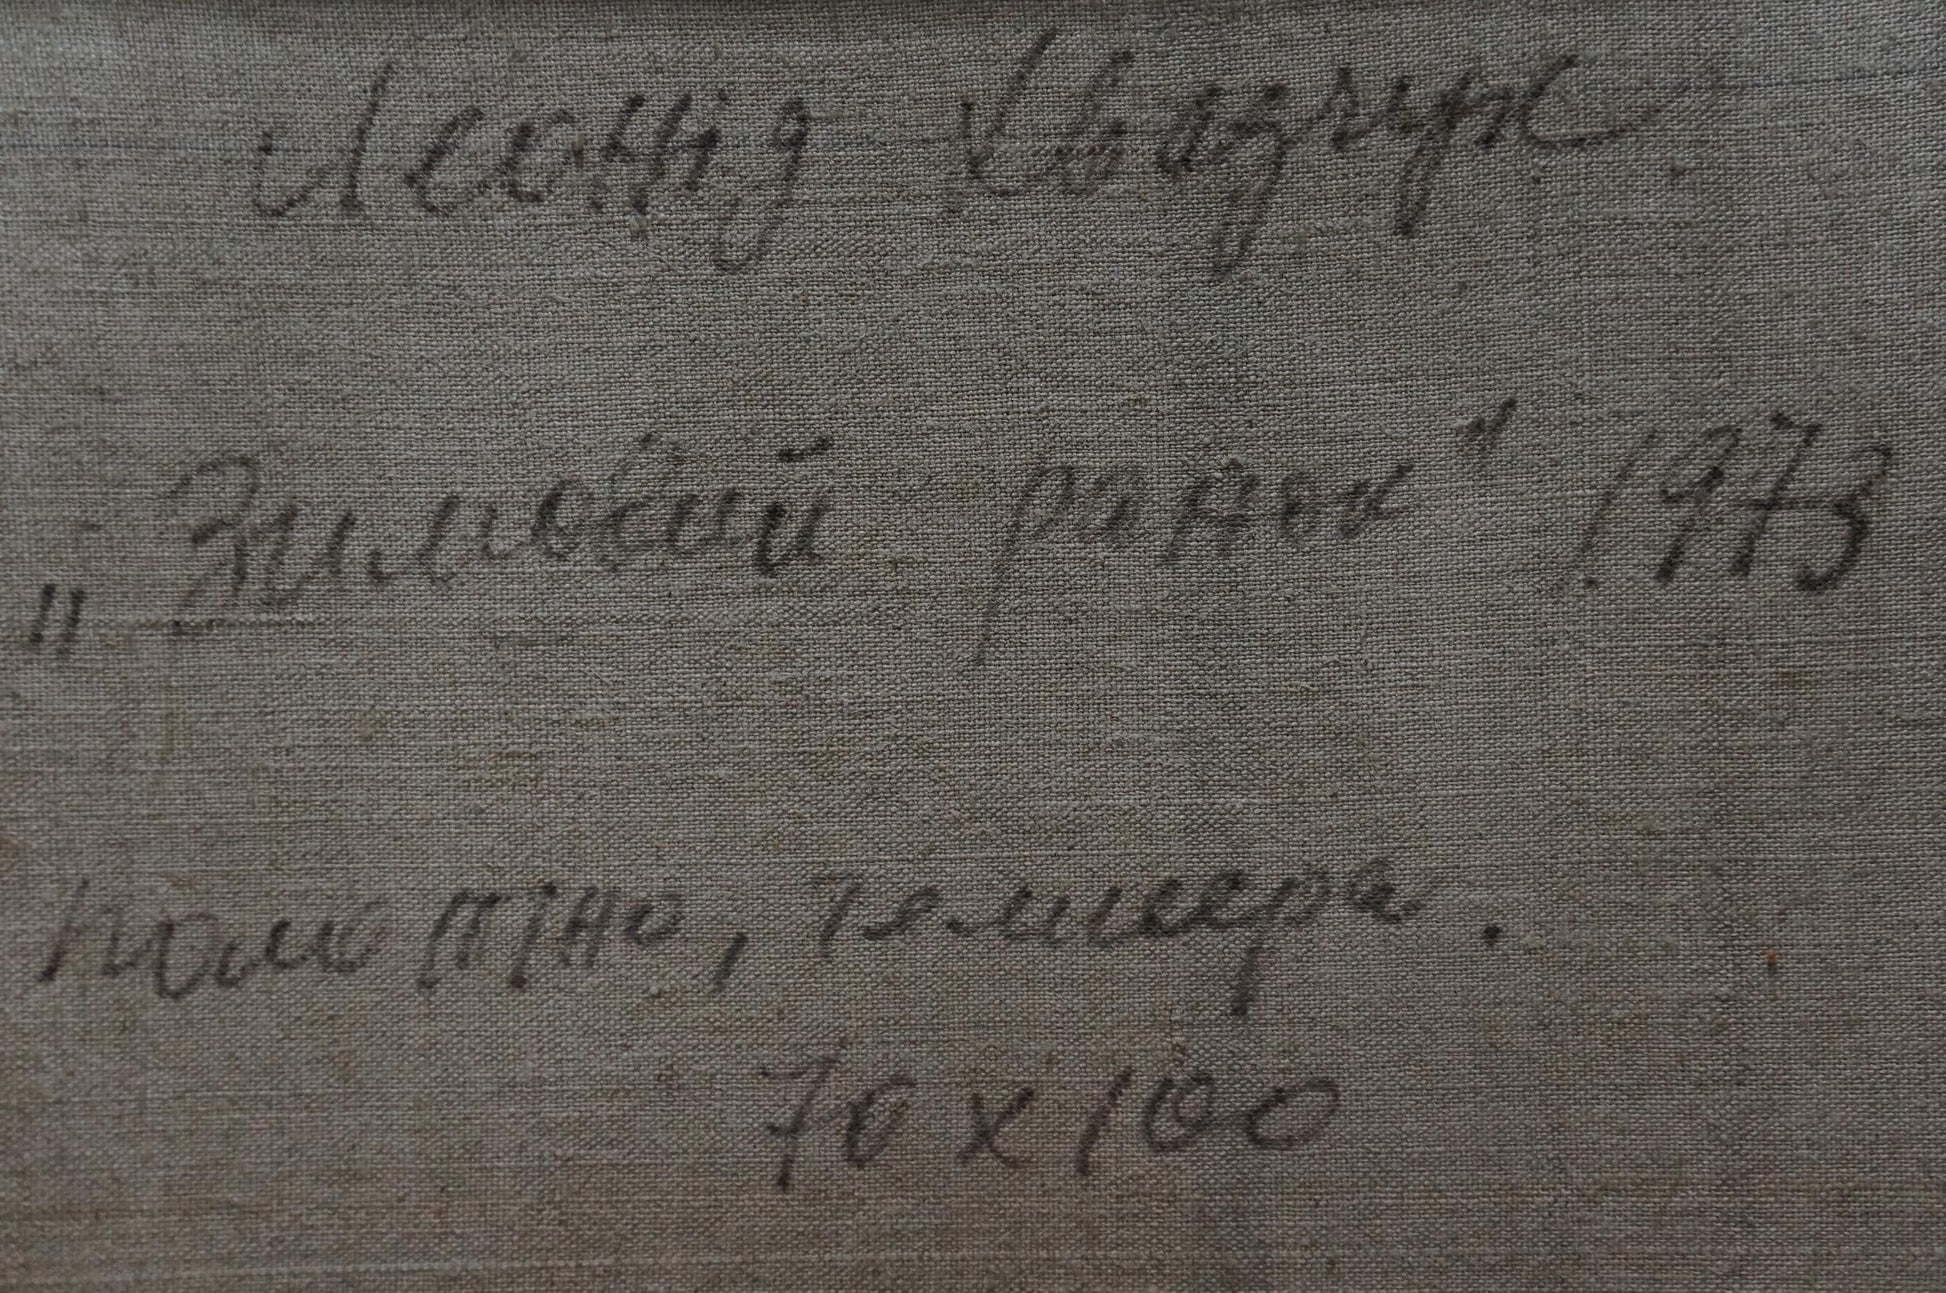 Леонід
„Зимовий ранок" 1973
полотно, темпера.
70 x 100